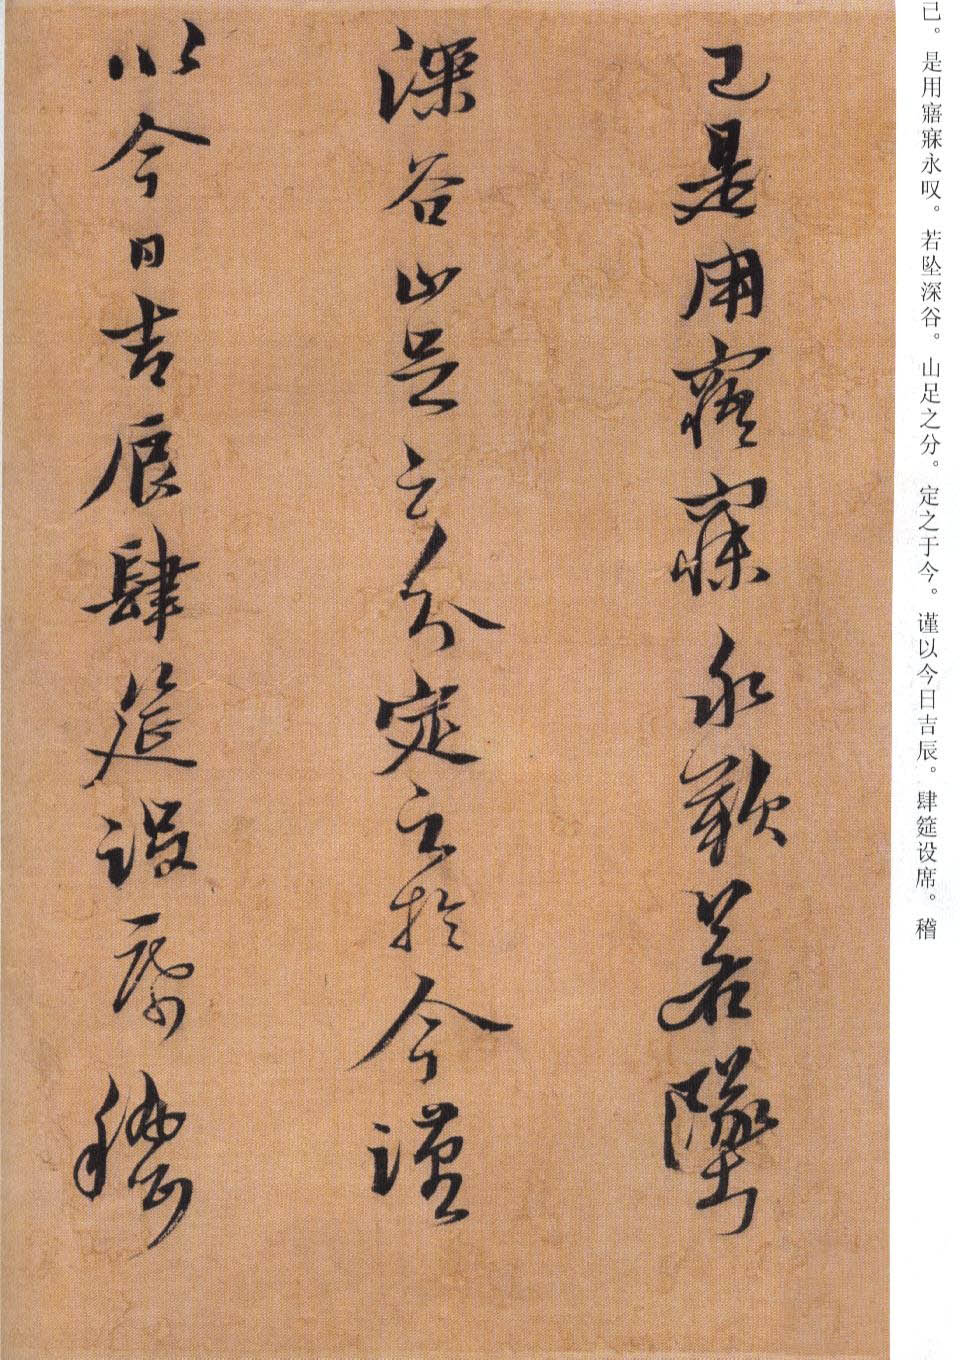 已。是用寤寐永叹。若坠深谷。山足之分。定之于今。谨以今日吉辰。肆筵设席。稽
已是用寤寐永歎若墜
深谷山足之分定之於今謹
以今日吉辰肆筵設席稽